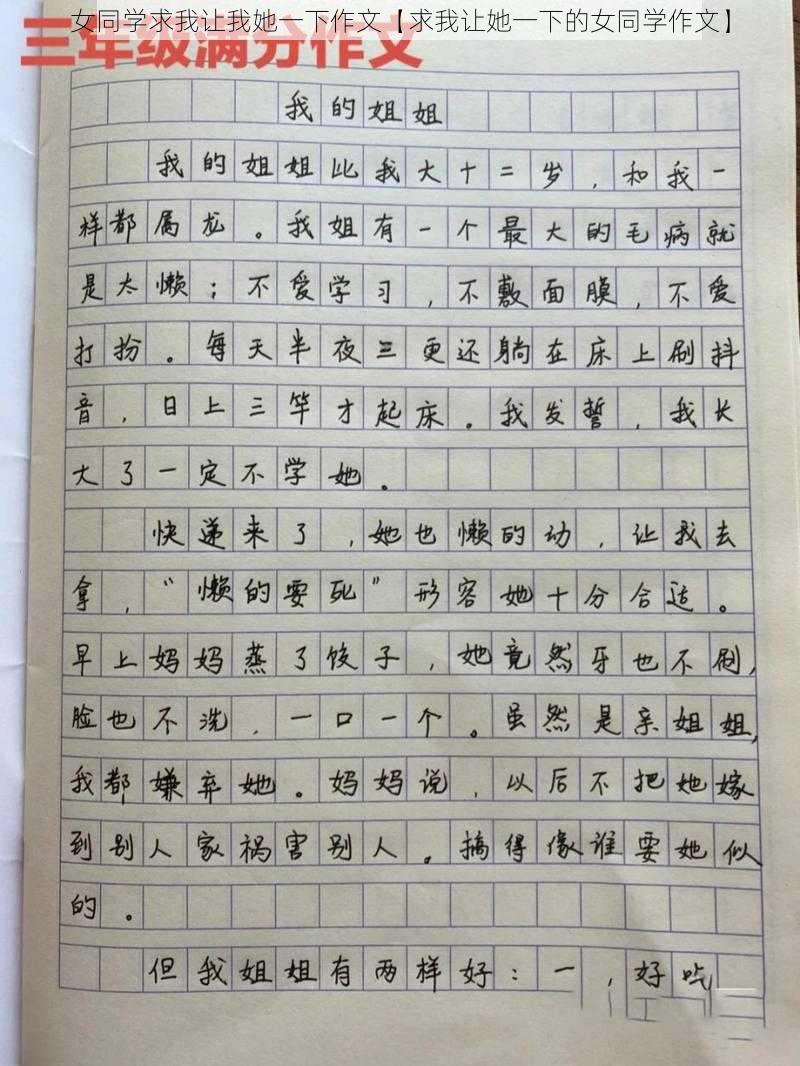 女同学求我让我她一下作文【求我让她一下的女同学作文】
三年级满分作文
我的姐姐
我的姐姐比我大十二岁，和我一
样都属龙。我姐有一个最大的毛病就
是太懒；不爱学习，不敷面膜，不爱
打扮。每天半夜三更还躺在床上刷抖
音，日上三竿才起床。我发誓，我长
大了一定不学她。
快递来了，她也懒的动，让我去
拿，“懒的要死”形容她十分合适。
早上妈妈蒸了饺子，她竟然牙也不刷，
脸也不洗，一口一个。虽然是亲姐姐，
我都嫌弃她。妈妈说，以后不把她嫁
到别人家祸害别人。搞得像谁要她似
的。
但我姐姐有两样好：一，好吃